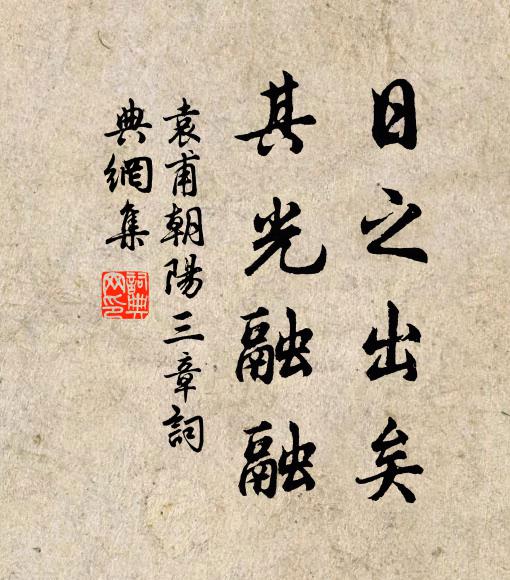 日之出矣
其光融融
袁甫朝陽三章詞
典網集
詞典
网印